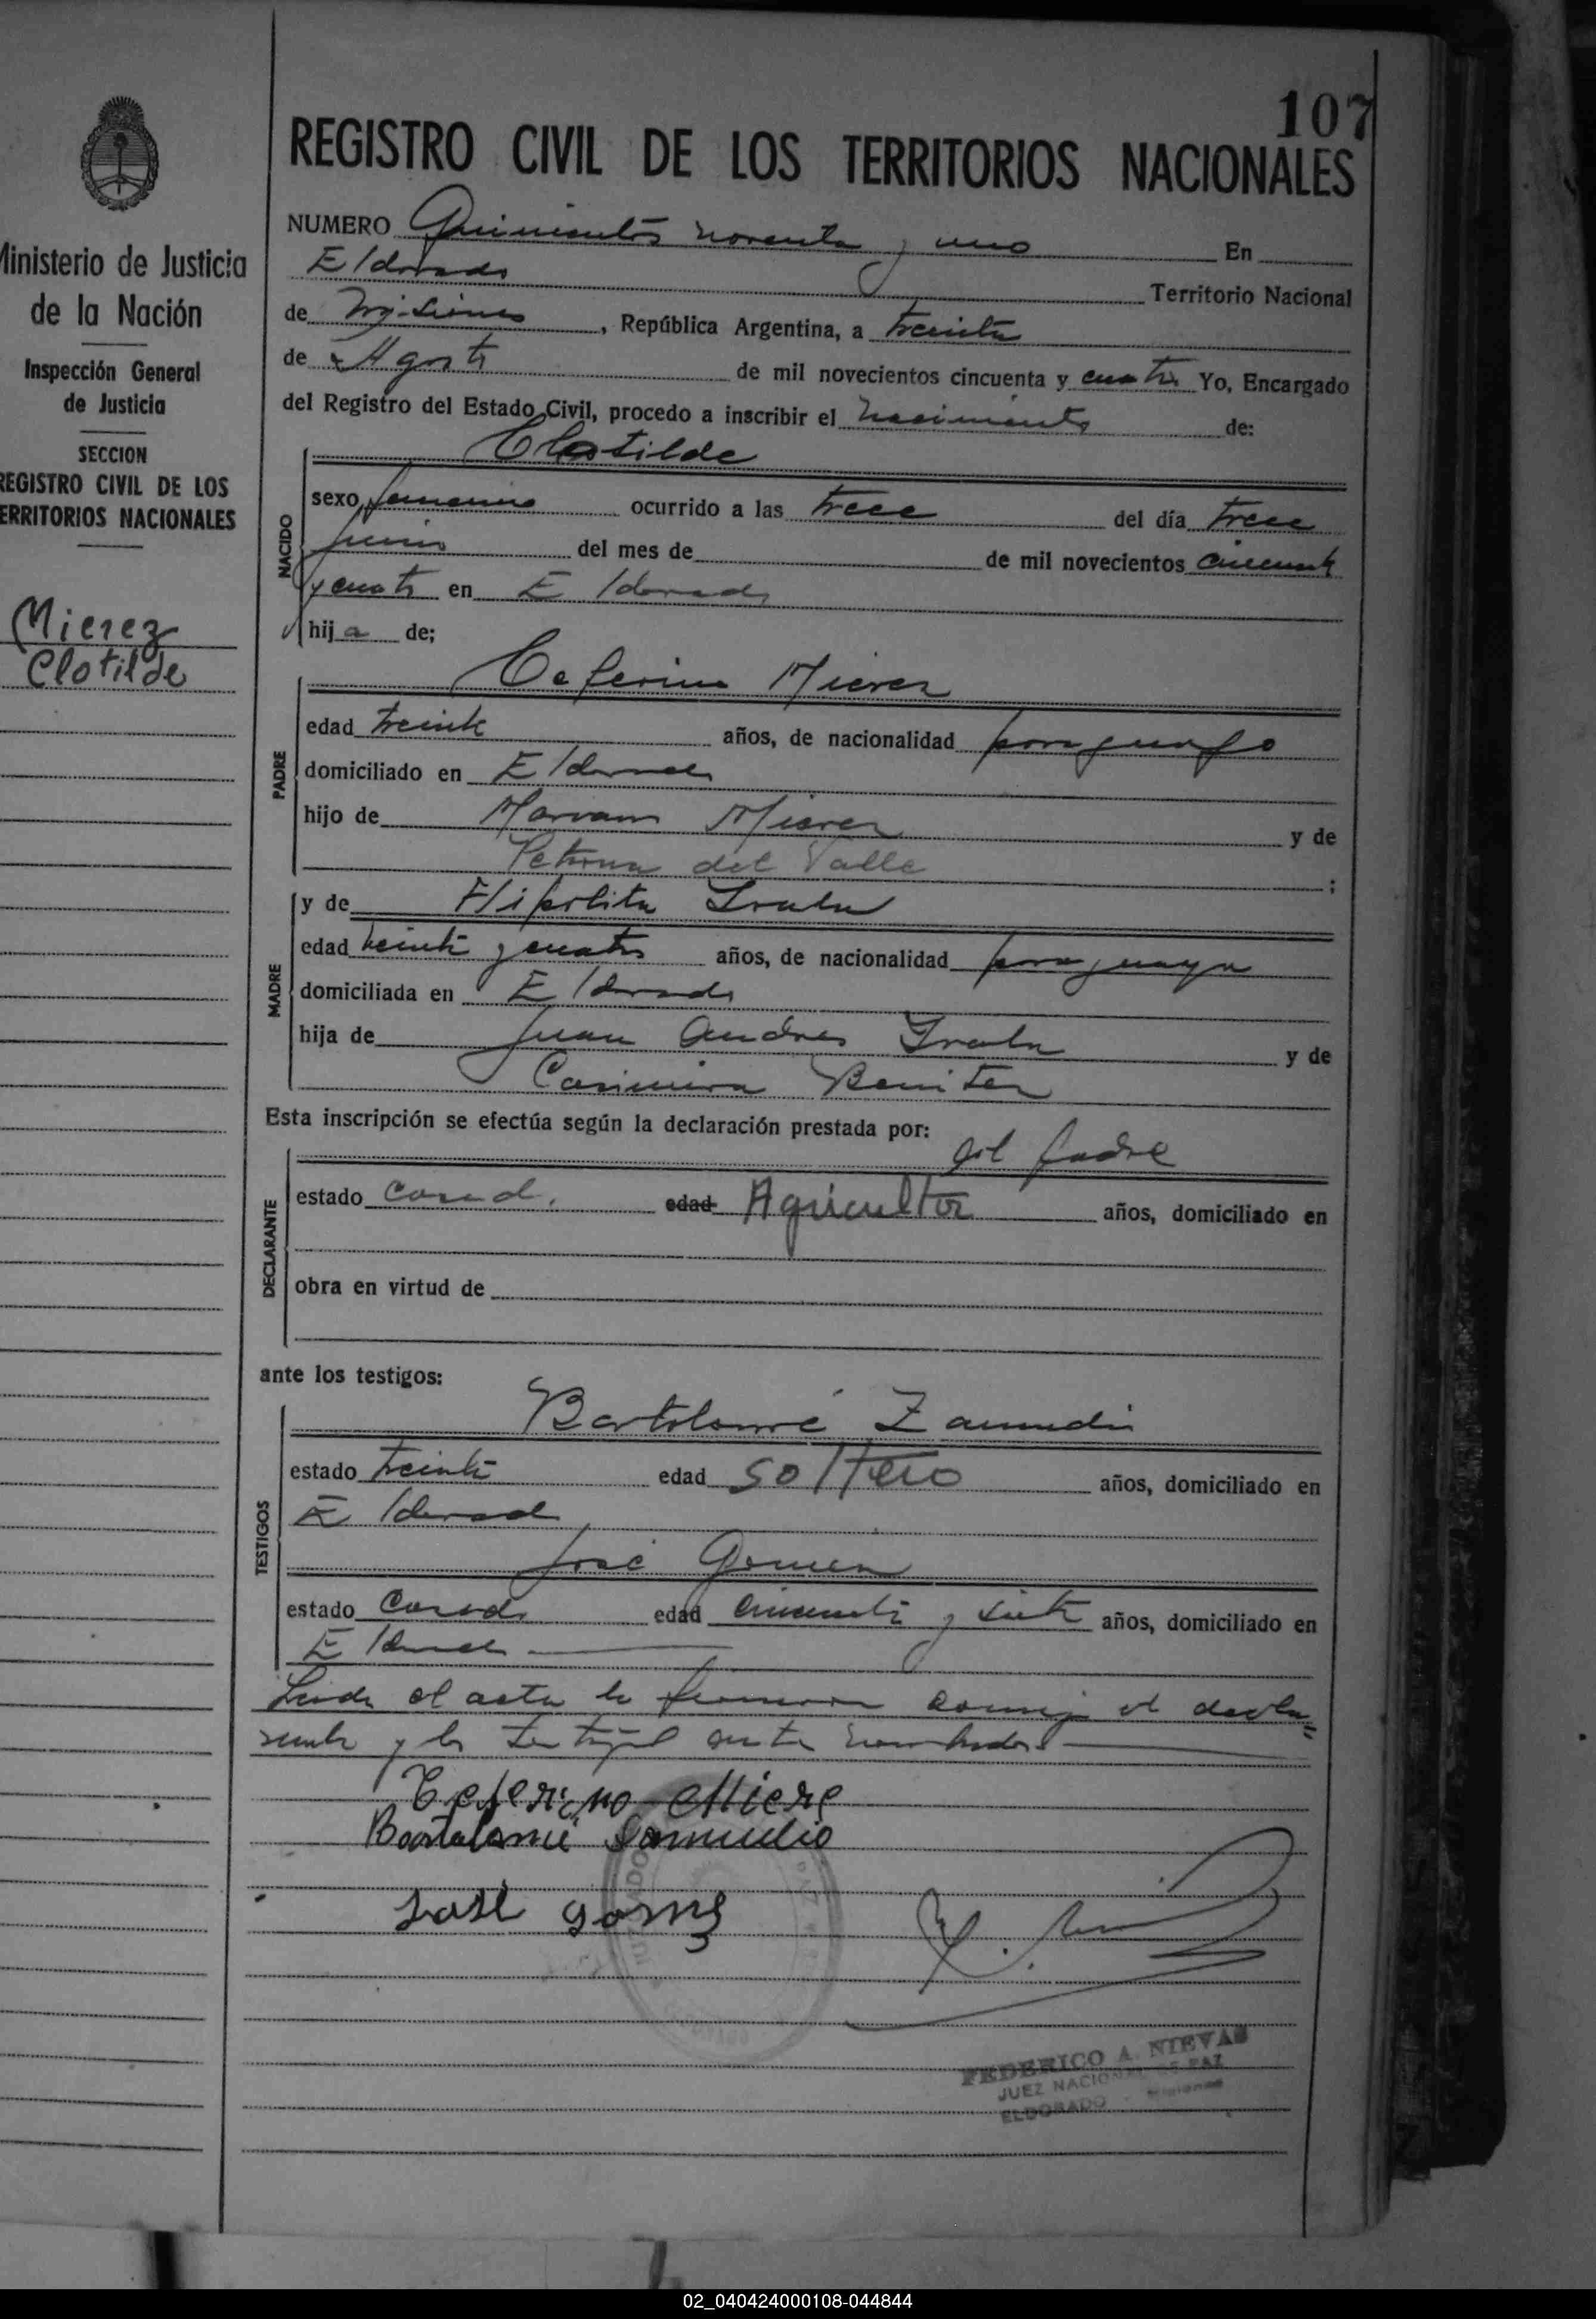 107
REGISTRO CIVIL DE LOS TERRITORIOS NACIONALES
Ministerio de Justicia
de la Nación
Inspección General
de Justicia
SECCION
REGISTRO CIVIL DE LOS
TERRITORIOS NACIONALES
Mierez
Clotilde
NUMERO Quinientos noventa y uno En
Eldorado Territorio Nacional
de Misiones, República Argentina, a treinta
de Agosto de mil novecientos cincuenta y cuatro Yo, Encargado
del Registro del Estado Civil, procedo a inscribir el nacimiento de:
NACIDO
Clotilde
sexo femenino ocurrido a las trece del día trece
junio del mes de de mil novecientos cincuenta
y cuatro en Eldorado
hija de;
PADRE
Ceferino Mierez
edad treinta años, de nacionalidad paraguayo
domiciliado en Eldorado
hijo de Mariano Mierez y de
Petrona del Valle ;
MADRE
y de Hipolita Irala
edad treinta y cuatro años, de nacionalidad paraguaya
domiciliada en Eldorado
hija de Juan Andres Irala y de
Casimira Benitez
Esta inscripción se efectúa según la declaración prestada por:
DECLARANTE
del padre
estado casado. edad Agricultor años, domiciliado en
obra en virtud de
ante los testigos:
TESTIGOS
Bartolomé Zamudio
estado treinta edad soltero años, domiciliado en
Eldorado
José Gomez
estado casado edad cincuenta y siete años, domiciliado en
Eldorado
Leida el acta la firmaron conmigo el decla-
rante y los testigos antes nombrados
Ceferino Miere
Bartolomé Samudio
José Gomez
FEDERICO A. NIEVAS
JUEZ NACIONAL DE PAZ
ELDORADO - Misiones
02_040424000108-044844